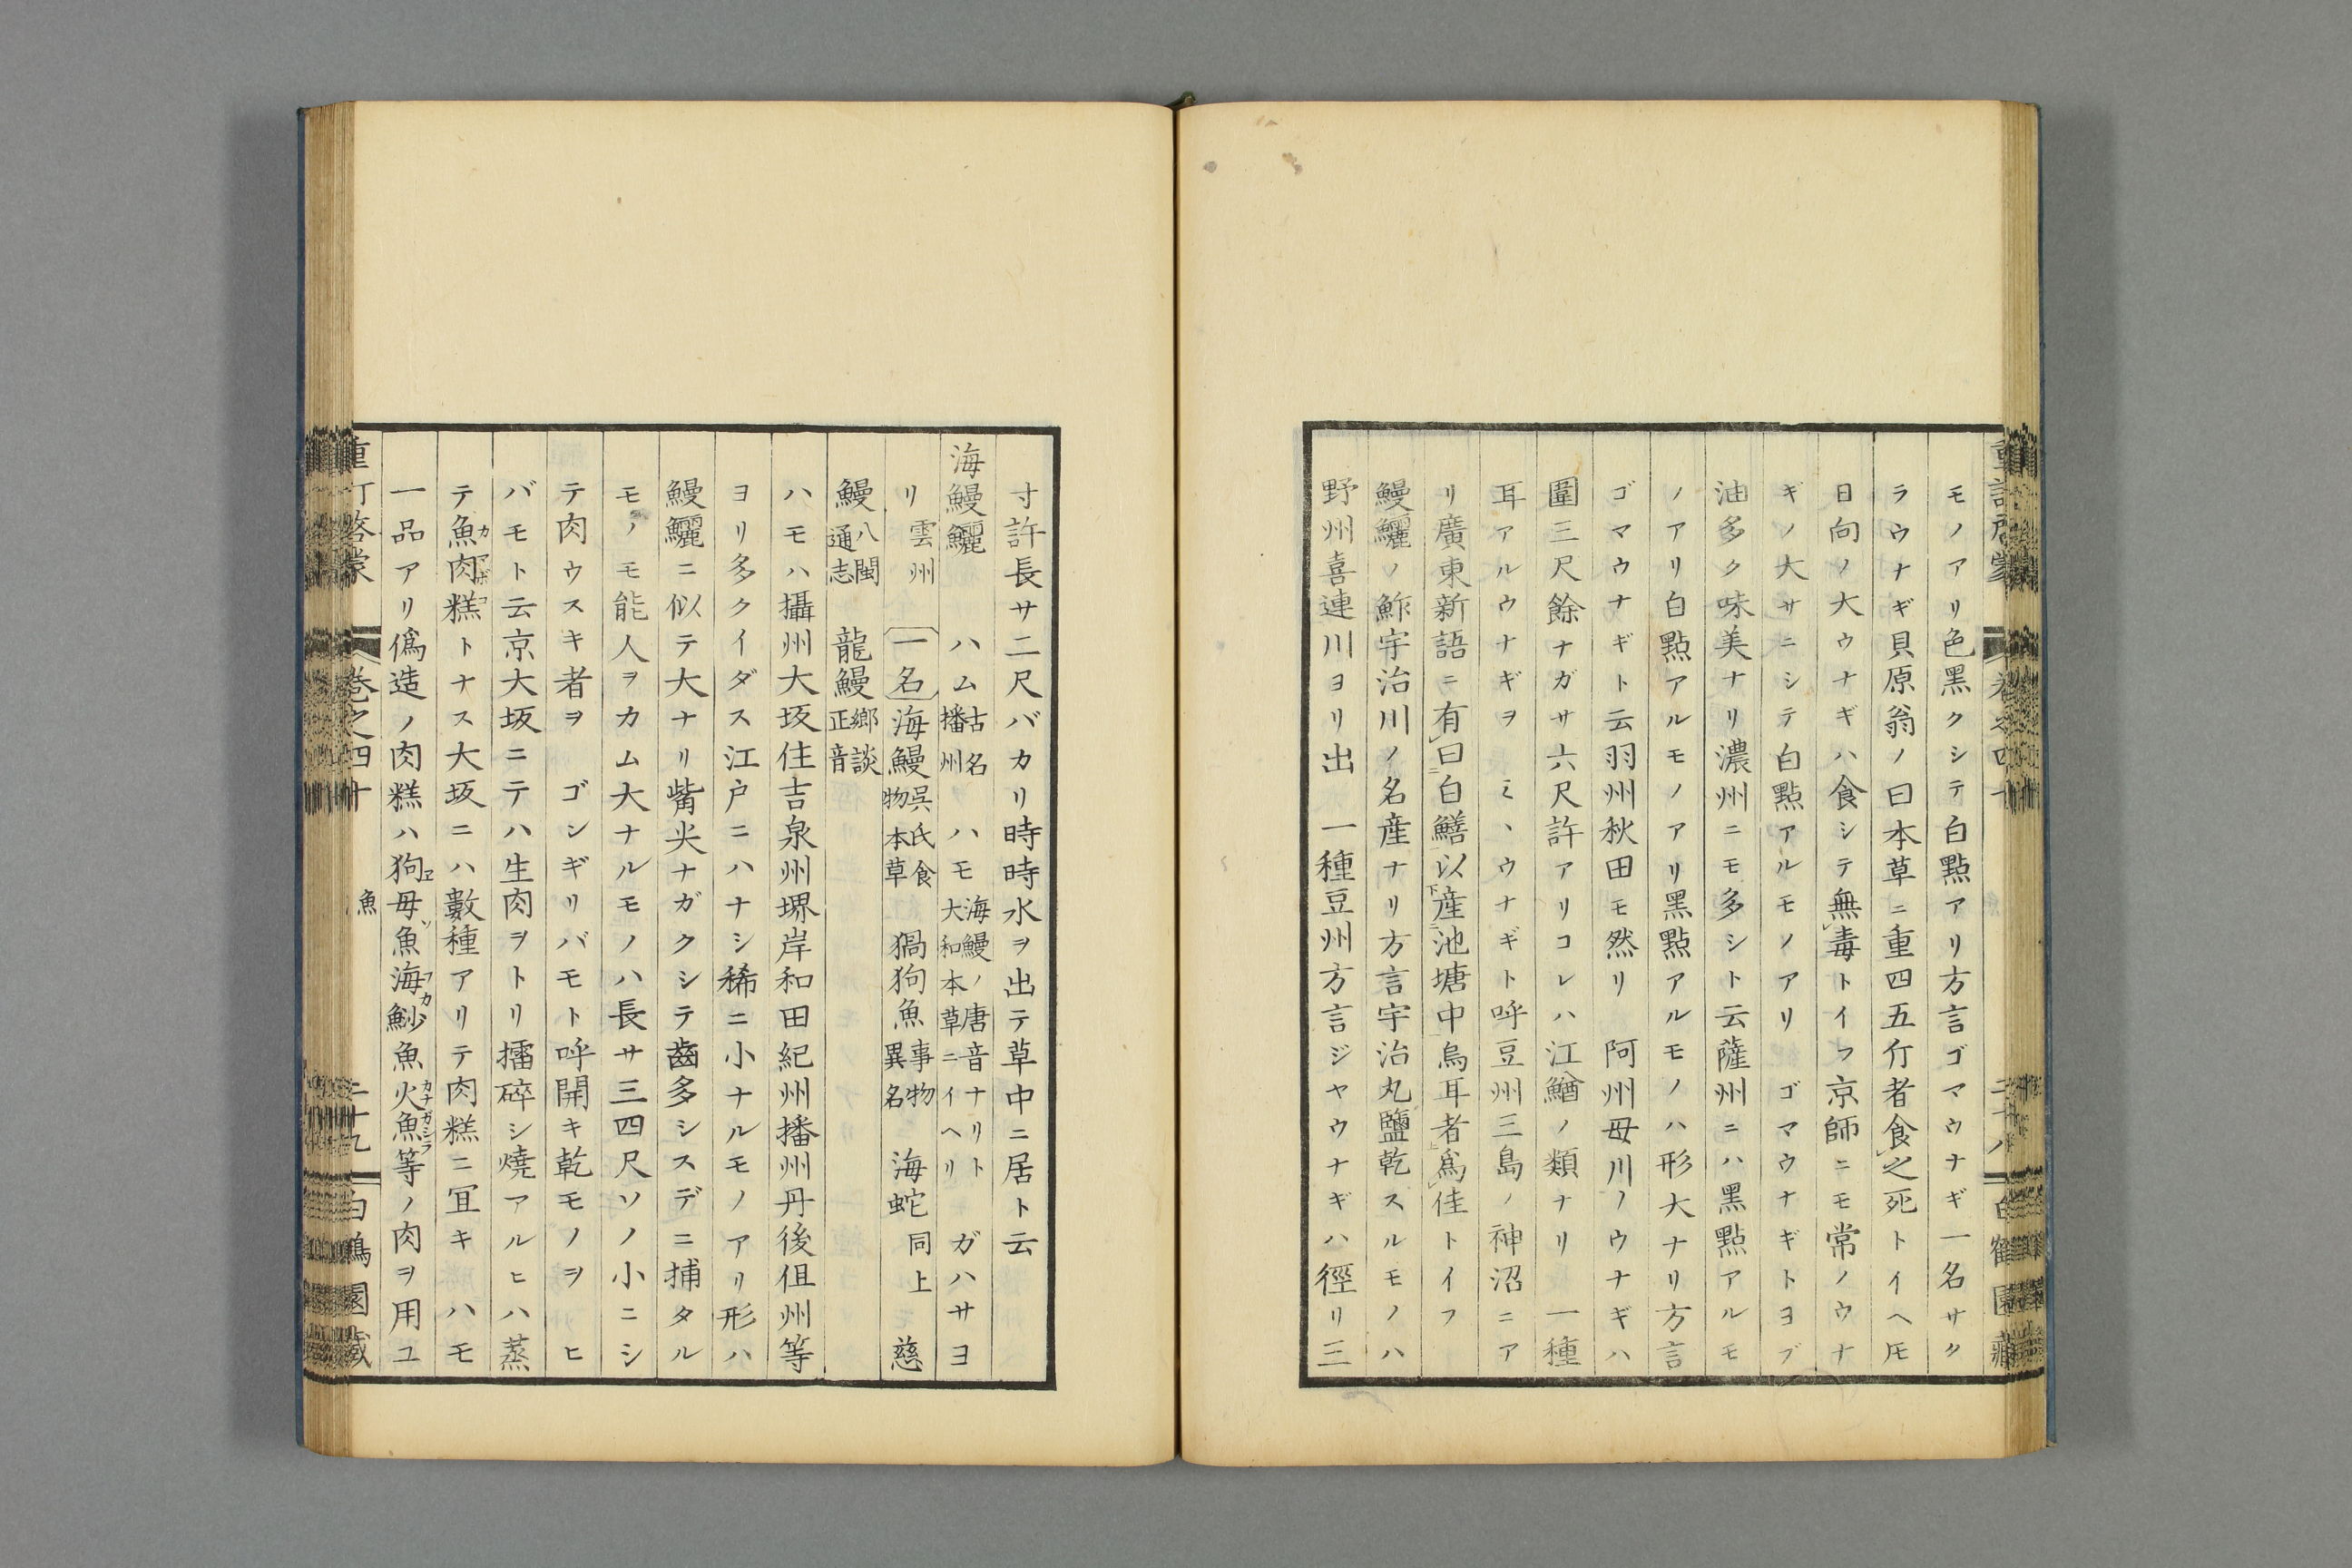 モノアリ色黑クシテ白點アリ方言ゴマウナギ一名サク
ラウナギ貝原翁ノ曰本草ニ重四五斤者食之死トイヘㇳモ
日向ノ大ウナギハ食シテ無毒トイフ京師ニモ常ノウナ
ギノ大サニシテ白點アルモノアリ ゴマウナギトヨブ
油多ク味美ナリ濃州ニモ多シト云薩州ニハ黑點アルモ
ノアリ白點アルモノアリ黑點アルモノハ形大ナリ方言
ゴマウナギト云羽州秋田モ然リ 阿州母川ノウナギハ
圍三尺餘ナガサ六尺許アリコレハ江鰌ノ類ナリ 一種
耳アルウナギヲ ミヽウナギト呼豆州三島ノ神沼ニア
リ廣東新語ニ有曰白鱔以產池塘中烏耳者爲佳トイフ
鰻鱺ノ鮓宇治川ノ名產ナリ方言宇治丸鹽乾スルモノハ
野州喜連川ヨリ出 一種豆州方言ジヤウナギハ徑リ三
寸許長サ二尺バカリ時時水ヲ出テ草中ニ居ト云
海鰻鱺 ハム古名播州 ハモ海鰻ノ唐音ナリト大和本草ニイヘリ ガハサヨ
リ雲州 一名海鰻吳氏食物本草 猧狗魚事物異名 海蛇同上 慈
鰻八閩通志 龍鰻鄉談正音
ハモハ攝州大坂住吉泉州堺岸和田紀州播州丹後但州等
ヨリ多クイダス江戶ニハナシ稀ニ小ナルモノアリ形ハ
鰻鱺ニ似テ大ナリ觜尖ナガクシテ齒多シスデニ捕タル
モノモ能人ヲカム大ナルモノハ長サ三四尺ソノ小ニシ
テ肉ウスキ者ヲ ゴンギリバモト呼開キ乾モノヲ ヒ
バモト云京大坂ニテハ生肉ヲトリ擂碎シ燒アルヒハ蒸
テ魚肉糕カマボコトナス大坂ニハ數種アリテ肉糕ニ宜キハモ
一品アリ僞造ノ肉糕ハ狗母魚エソ海魦魚フカ火魚カナガシラ等ノ肉ヲ用ユ
重訂啓蒙 卷之四十 魚 二十九